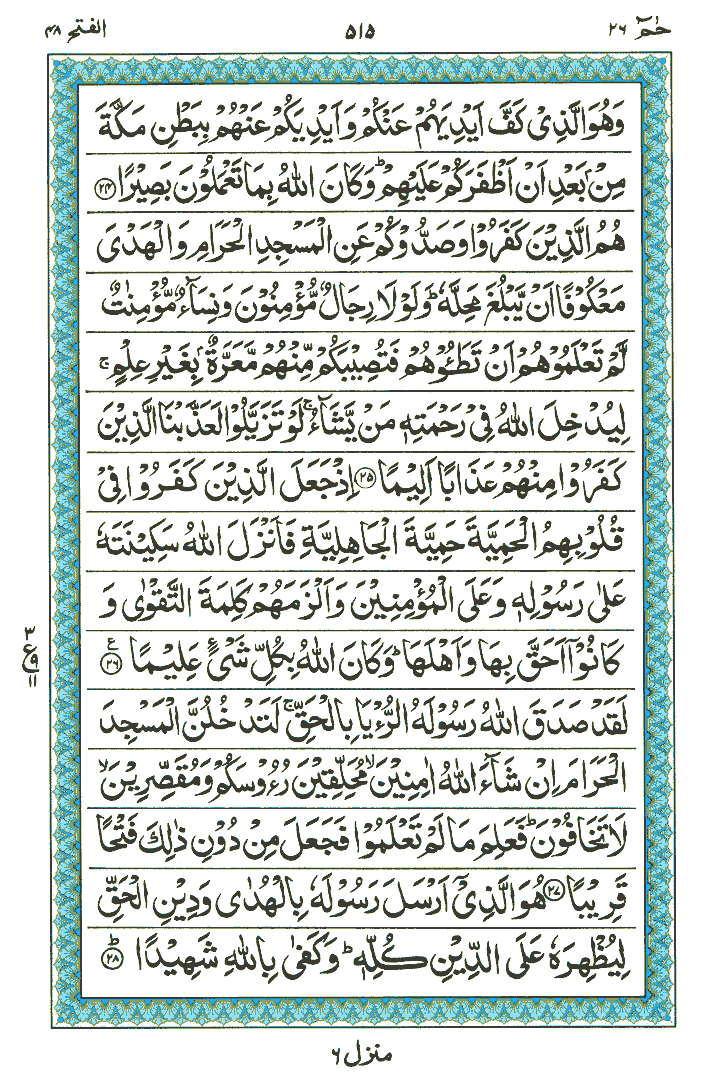 حٰمٓ ٢٦ ٥١٥ الفتح ٤٨
وَهُوَ الَّذِىْ كَفَّ اَيْدِيَهُمْ عَنْكُمْ وَ اَيْدِيَكُمْ عَنْهُمْ بِبَطْنِ مَكَّةَ
مِنْۢ بَعْدِ اَنْ اَظْفَرَكُمْ عَلَيْهِمْ ؕ وَكَانَ اللّٰهُ بِمَا تَعْمَلُوْنَ بَصِيْرًا ﴿٢٤﴾
هُمُ الَّذِيْنَ كَفَرُوْا وَصَدُّوْكُمْ عَنِ الْمَسْجِدِ الْحَرَامِ وَ الْهَدْىَ
مَعْكُوْفًا اَنْ يَّبْلُغَ مَحِلَّهٗ ؕ وَلَوْ لَا رِجَالٌ مُّؤْمِنُوْنَ وَ نِسَآءٌ مُّؤْمِنٰتٌ
لَّمْ تَعْلَمُوْهُمْ اَنْ تَطَـُٔوْهُمْ فَتُصِيْبَكُمْ مِّنْهُمْ مَّعَرَّةٌۢ بِغَيْرِ عِلْمٍ ۚ
لِيُدْخِلَ اللّٰهُ فِىْ رَحْمَتِهٖ مَنْ يَّشَآءُ ۚ لَوْ تَزَيَّلُوْا لَعَذَّبْنَا الَّذِيْنَ
كَفَرُوْا مِنْهُمْ عَذَابًا اَلِيْمًا ﴿٢٥﴾ اِذْ جَعَلَ الَّذِيْنَ كَفَرُوْا فِىْ
قُلُوْبِهِمُ الْحَمِيَّةَ حَمِيَّةَ الْجَاهِلِيَّةِ فَاَنْزَلَ اللّٰهُ سَكِيْنَتَهٗ
عَلٰى رَسُوْلِهٖ وَعَلَى الْمُؤْمِنِيْنَ وَ اَلْزَمَهُمْ كَلِمَةَ التَّقْوٰى وَ
كَانُوْۤا اَحَقَّ بِهَا وَ اَهْلَهَا ؕ وَكَانَ اللّٰهُ بِكُلِّ شَىْءٍ عَلِيْمًا ﴿٢٦﴾ ع
٣
ع
١١
لَقَدْ صَدَقَ اللّٰهُ رَسُوْلَهُ الرُّءْيَا بِالْحَقِّ ۚ لَتَدْخُلُنَّ الْمَسْجِدَ
الْحَرَامَ اِنْ شَآءَ اللّٰهُ اٰمِنِيْنَ ۙ مُحَلِّقِيْنَ رُءُوْسَكُمْ وَمُقَصِّرِيْنَ ۙ
لَا تَخَافُوْنَ ؕ فَعَلِمَ مَا لَمْ تَعْلَمُوْا فَجَعَلَ مِنْ دُوْنِ ذٰلِكَ فَتْحًا
قَرِيْبًا ﴿٢٧﴾ هُوَ الَّذِىْۤ اَرْسَلَ رَسُوْلَهٗ بِالْهُدٰى وَدِيْنِ الْحَقِّ
لِيُظْهِرَهٗ عَلَى الدِّيْنِ كُلِّهٖ ؕ وَكَفٰى بِاللّٰهِ شَهِيْدًا ﴿٢٨﴾ ؕ
منزل ٦